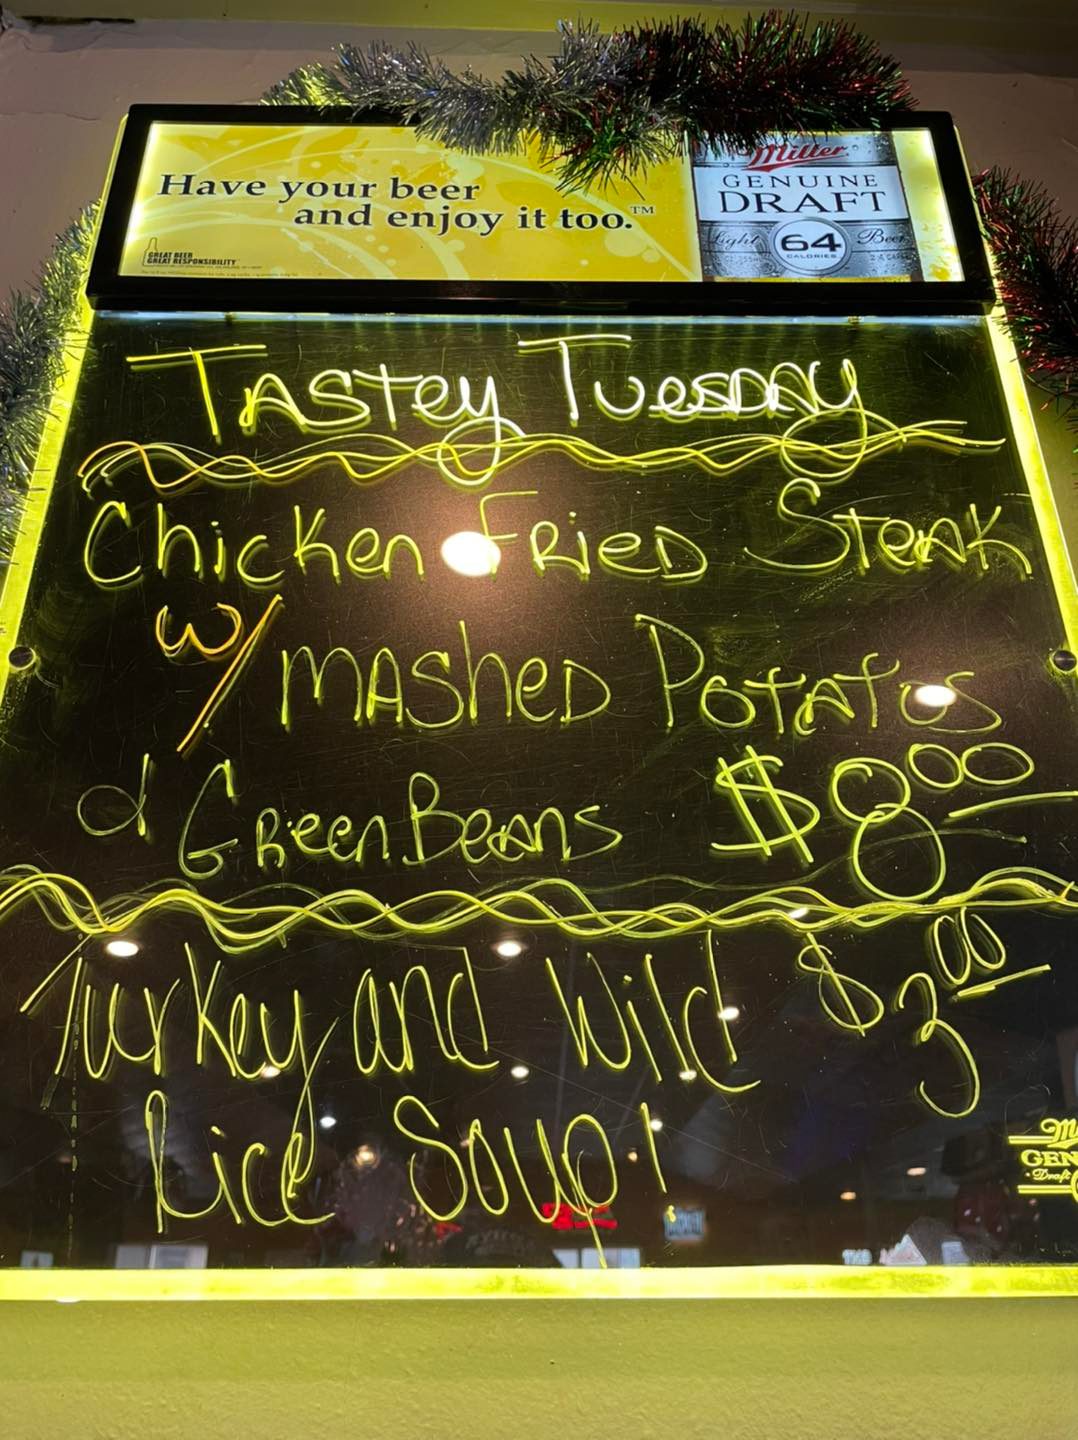 Have your beer
and enjoy it too.™
GREAT BEER
GREAT RESPONSIBILITY
Miller
GENUINE
DRAFT
Light 64 Beer
CALORIES
Tastey Tuesday
Chicken Fried Steak
w/ mashed Potatos
& Green Beans $8.00
Turkey and Wild $3.00
Rice Soup!